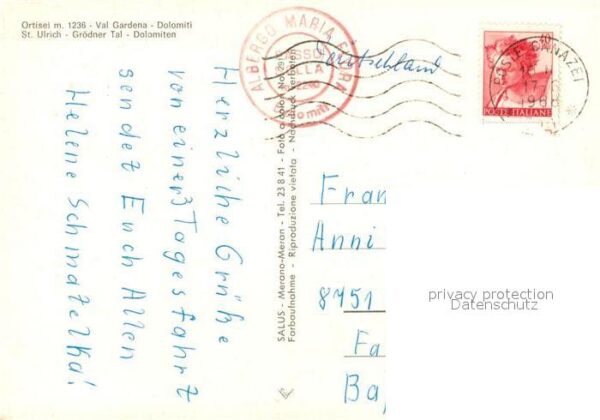 Ortisei m. 1236 - Val Gardena - Dolomiti
St. Ulrich - Grödner Tal - Dolomiten
Herzliche Grüße
von einer 3 Tagesfahrt
sendet Euch Allen
Helene Schmatelka!
SALUS - Merano-Meran - Tel. 23 8 41 - Foto a color
Farbaufnahme - Riproduzione vietata - Nachdruck verboten
ALBERGO MARIA FLORA
Deutschland
POSTE CANAZEI
POSTE ITALIANE
Fran
Anni
8751
Fa
Ba
privacy protection
Datenschutz